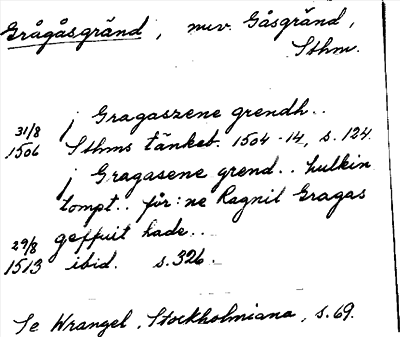 Grågåsgränd, nuv. Gåsgränd,
Sthm.
j Gragaszene grendh..
31/8
1506 Sthms tänkeb. 1504-14, s. 124.
j Gragasene grend.. hulkin
tompt.. för:ne Ragnil Gragas
29/8 geffuit hade..
1513 ibid. s. 326.
Se Wrangel, Stockholmiana, s. 69.